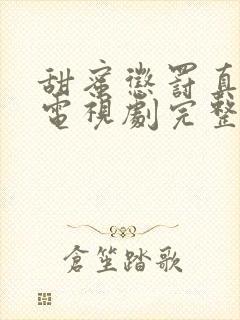 甜蜜懲罰真
電視劇完整
倉笙踏歌